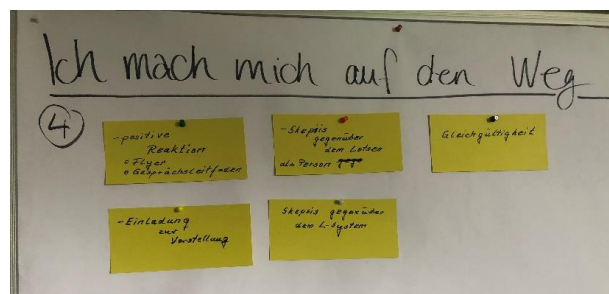 Ich mach mich auf den Weg
4
- positive
Reaktion
o Flyer
o Gesprächsleitfaden
- Skepsis
gegenüber
dem Lotsen
als Person
Gleichgültigkeit
- Einladung
zur
Vorstellung
Skepsis gegenüber
dem L-System